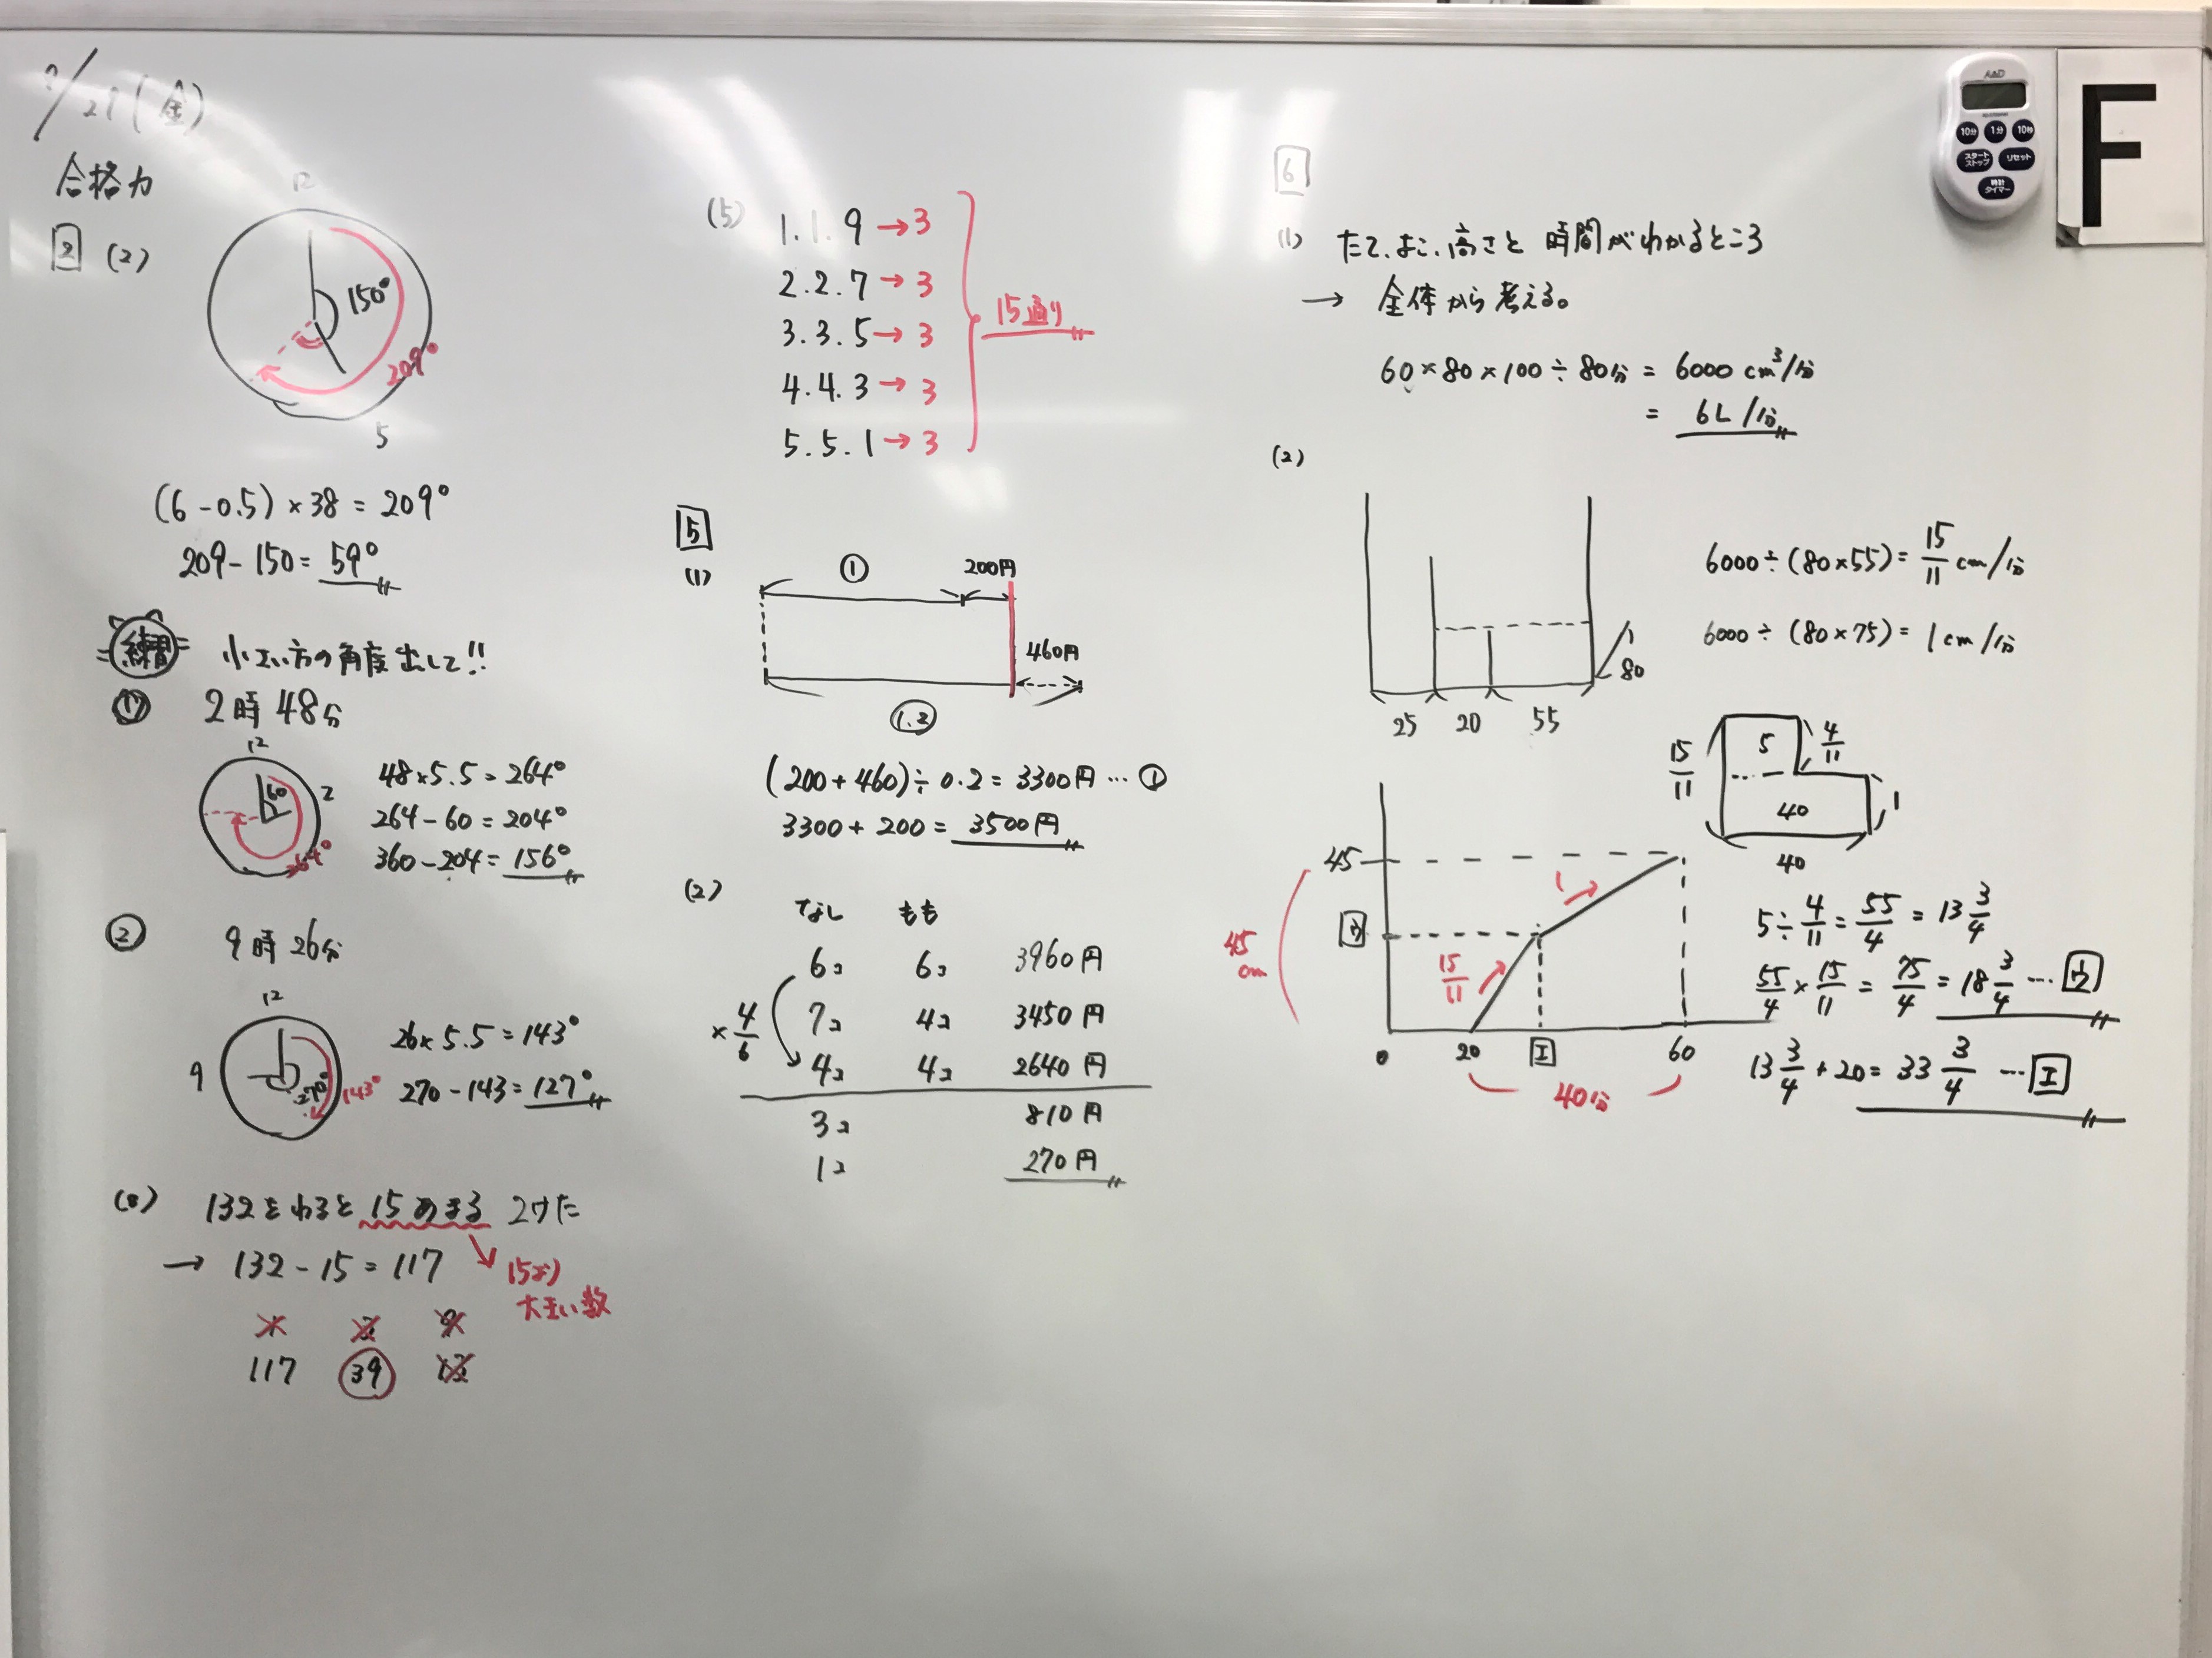 9/29(金)
合格力
2 (2)
12
150°
209°
5
(6-0.5)×38=209°
209-150=59°
練習 小さい方の角度出して!!
① 2時48分
12
60
2
264°
48×5.5=264°
264-60=204°
360-204=156°
② 9時26分
12
9
270°
143°
26×5.5=143°
270-143=127°
(3) 132をわると15あまる 2けた
→ 132-15=117
15より
大きい数
1 3 9
117 39 13
(5) 1.1.9→3
2.2.7→3
3.3.5→3
4.4.3→3
5.5.1→3
15通り
5
(1)
① 200円
460円
1.2
(200+460)÷0.2=3300円…①
3300+200=3500円
(2)
なし もも
6コ 6コ 3960円
7コ 4コ 3450円
×4/6
4コ 4コ 2640円
3コ 810円
1コ 270円
6
(1) たて、よこ、高さと 時間がわかるところ
→ 全体から考える。
60×80×100÷80分=6000cm³/分
=6L/分
(2)
25 20 55
80
6000÷(80×55)=15/11cm/分
6000÷(80×75)=1cm/分
15/11
5
4/11
40
1
40
45
45
cm
ウ
15/11
1
0 20 エ 60
40分
5÷4/11=55/4=13 3/4
55/4×15/11=75/4=18 3/4…ウ
13 3/4+20=33 3/4…エ
A&D
10分 1分 10秒
スタート
ストップ
リセット
時計
タイマー
F